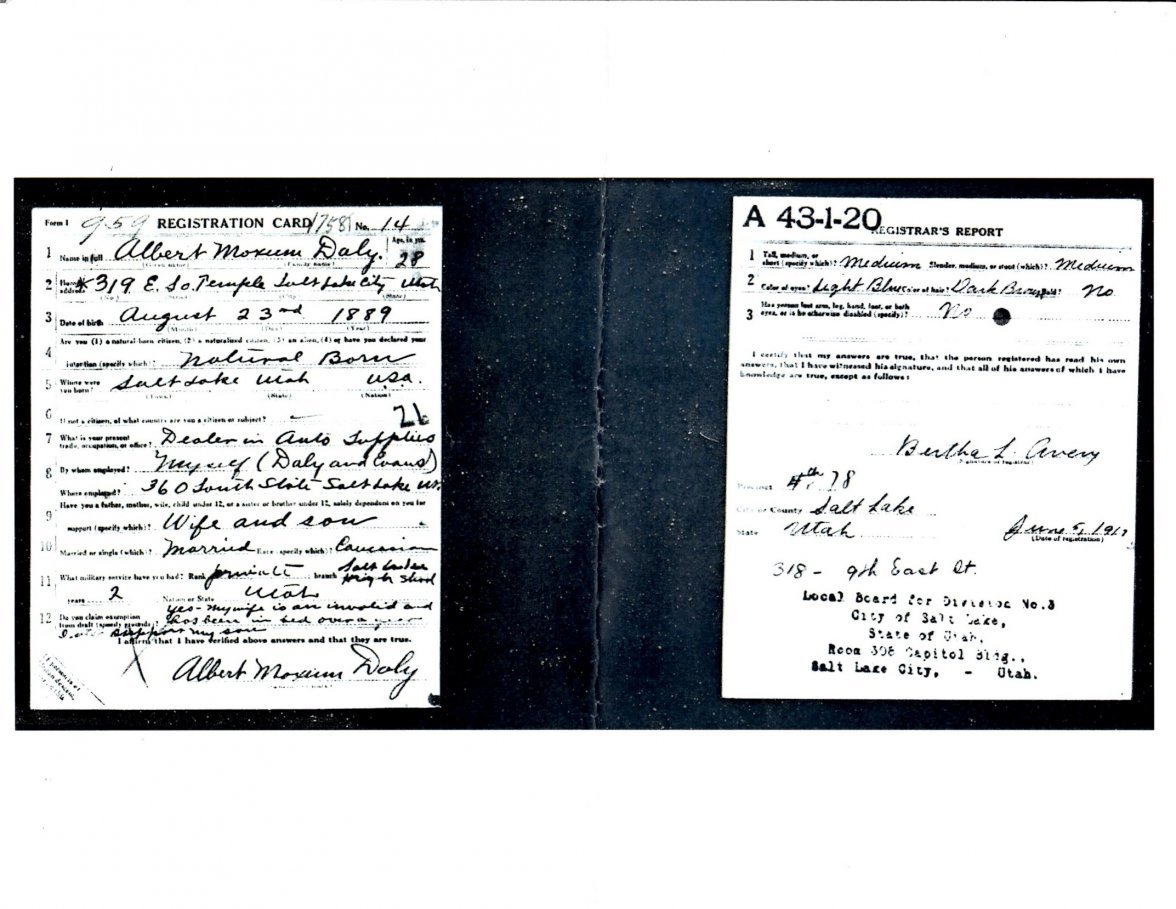 Form 1 959 REGISTRATION CARD 1758 No. 14
1 Name in full Albert Moxum Daly. Age, in yrs. 28
(Given name) (Family name)
2 Home address 319 E. So. Temple Salt Lake City Utah
(No.) (Street) (City) (State)
3 Date of birth August 23rd 1889
(Month) (Day) (Year)
Are you (1) a natural-born citizen, (2) a naturalized citizen, (3) an alien, (4) or have you declared your
4 intention (specify which)? Natural Born
5 Where were you born? Salt Lake Utah U.S.A.
(Town) (State) (Nation)
21
6 If not a citizen, of what country are you a citizen or subject? —
7 What is your present trade, occupation, or office? Dealer in Auto Supplies
8 By whom employed? Myself (Daly and Evans)
Where employed? 360 South State Salt Lake Ut.
9 Have you a father, mother, wife, child under 12, or a sister or brother under 12, solely dependent on you for
support (specify which)? Wife and son
10 Married or single (which)? Married Race (specify which)? Caucasian
11 What military service have you had? Rank private ; branch Salt Lake High School
years 2 Nation or State Utah
12 Do you claim exemption from draft (specify grounds)? Yes - My wife is an invalid and
has been in bed over a year
support my son
I affirm that I have verified above answers and that they are true.
Albert Moxum Daly
A 43-1-20 REGISTRAR'S REPORT
1 Tall, medium, or short (specify which)? Medium Slender, medium, or stout (which)? Medium
2 Color of eyes? Light Blue Color of hair? Dark Brown Bald? No
3 Has person lost arm, leg, hand, foot, or both eyes, or is he otherwise disabled (specify)? No
I certify that my answers are true, that the person registered has read his own
answers, that I have witnessed his signature, and that all of his answers of which I have
knowledge are true, except as follows:
Bertha L. Avery
(Signature of registrar)
Precinct 78
City or County Salt Lake
State Utah June 5, 1917
(Date of registration)
318 - 9th East St.
Local Board for Division No.3
City of Salt Lake,
State of Utah,
Room 308 Capitol Bldg.,
Salt Lake City, - Utah.